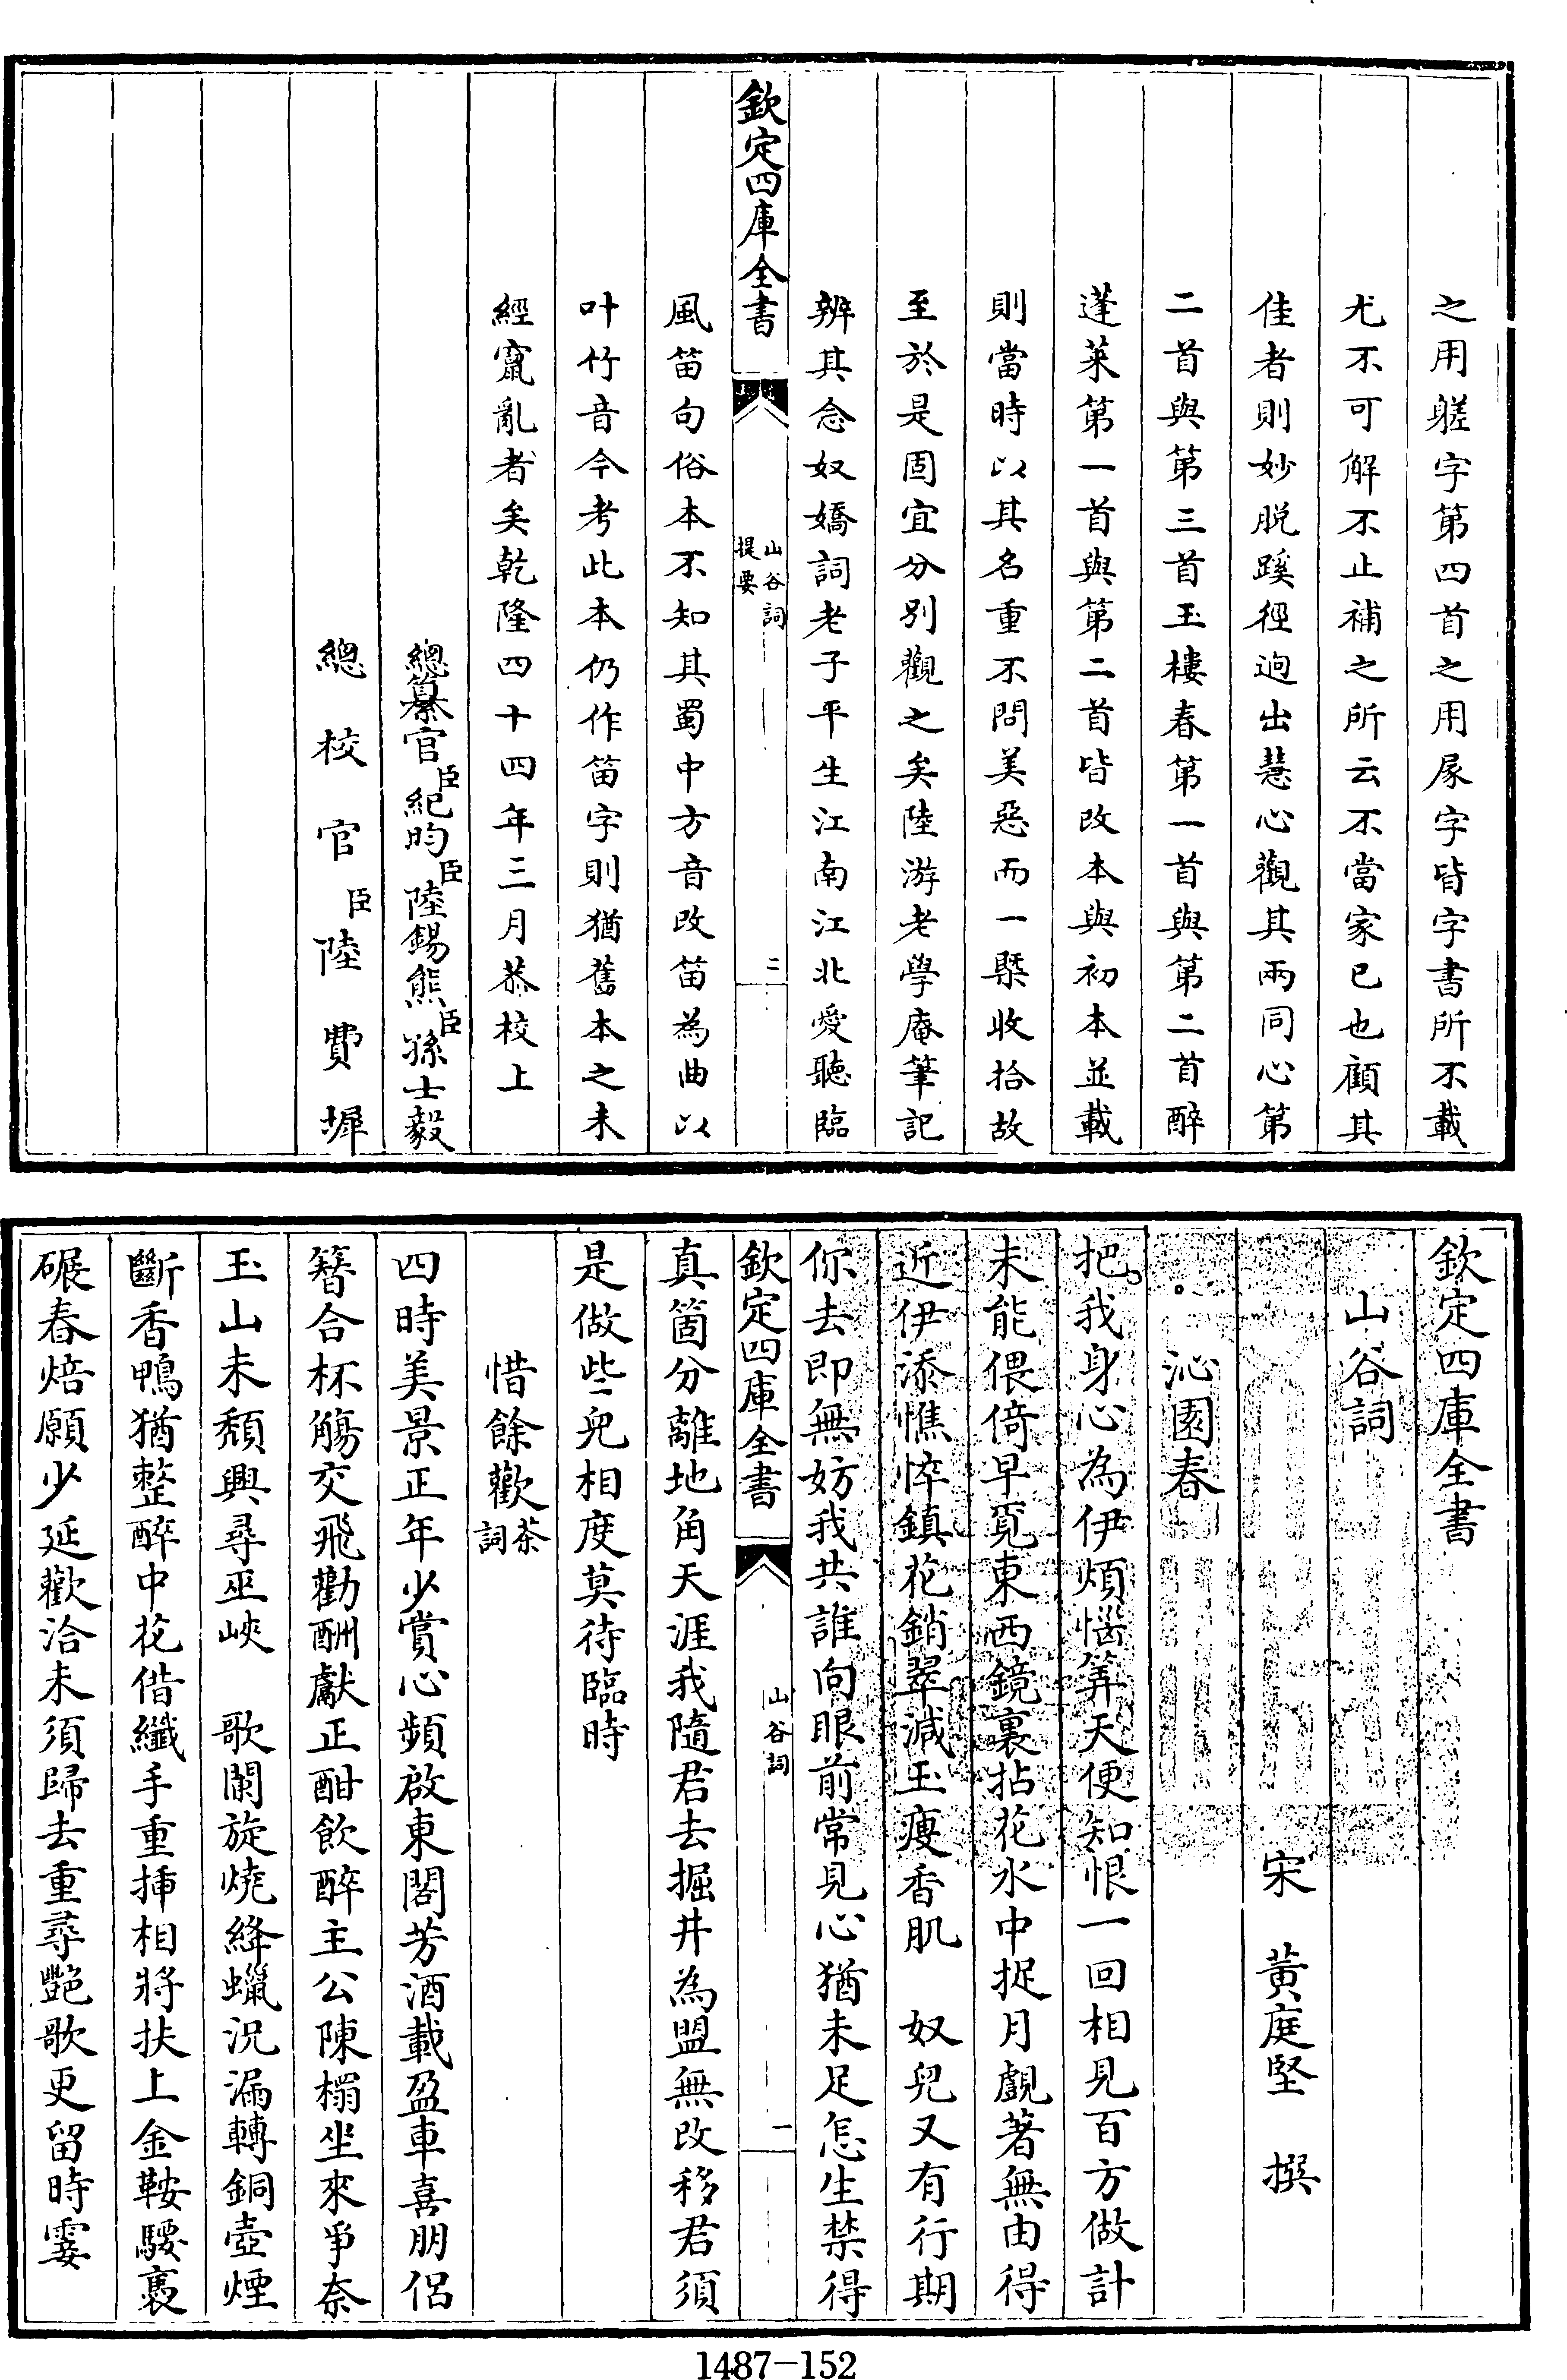 之用䠡字第四首之用㞘字皆字書所不載
尤不可解不止補之所云不當家已也顧其
佳者則妙脱蹊徑迥出慧心觀其兩同心第
二首與第三首玉樓春第一首與第二首醉
蓬萊第一首與第二首皆改本與初本並載
則當時以其名重不問美惡而一槩收拾故
至於是固宜分别觀之矣陸游老學庵筆記
辨其念奴嬌詞老子平生江南江北愛聽臨
欽定四庫全書
山谷詞
提要
二
風笛句俗本不知其蜀中方音改笛為曲以
叶竹音今考此本仍作笛字則猶舊本之未
經竄亂者矣乾隆四十四年三月恭校上
總纂官臣紀昀臣陸錫熊臣孫士毅
總校官臣陸費墀
欽定四庫全書
山谷詞
宋 黃庭堅 撰
沁園春
把我身心為伊煩惱筭天便知恨一回相見百方做計
未能偎倚早覓東西鏡裏拈花水中捉月覷著無由得
近伊添憔悴鎮花銷翠減玉瘦香肌 奴兒又有行期
你去即無妨我共誰向眼前常見心猶未足怎生禁得
欽定四庫全書
山谷詞
一
真箇分離地角天涯我隨君去掘井為盟無改移君須
是做些兒相度莫待臨時
惜餘歡茶詞
四時美景正年少賞心頻啟東閣芳酒載盈車喜朋侶
簪合杯觴交飛勸酬獻正酣飲醉主公陳榻坐來爭奈
玉山未頽興尋巫峽 歌闌旋燒絳蠟況漏轉銅壺煙
斷香鴨猶整醉中花借纖手重揷相將扶上金鞍騕褭
碾春焙願少延歡洽未須歸去重尋艷歌更留時霎
1487—152